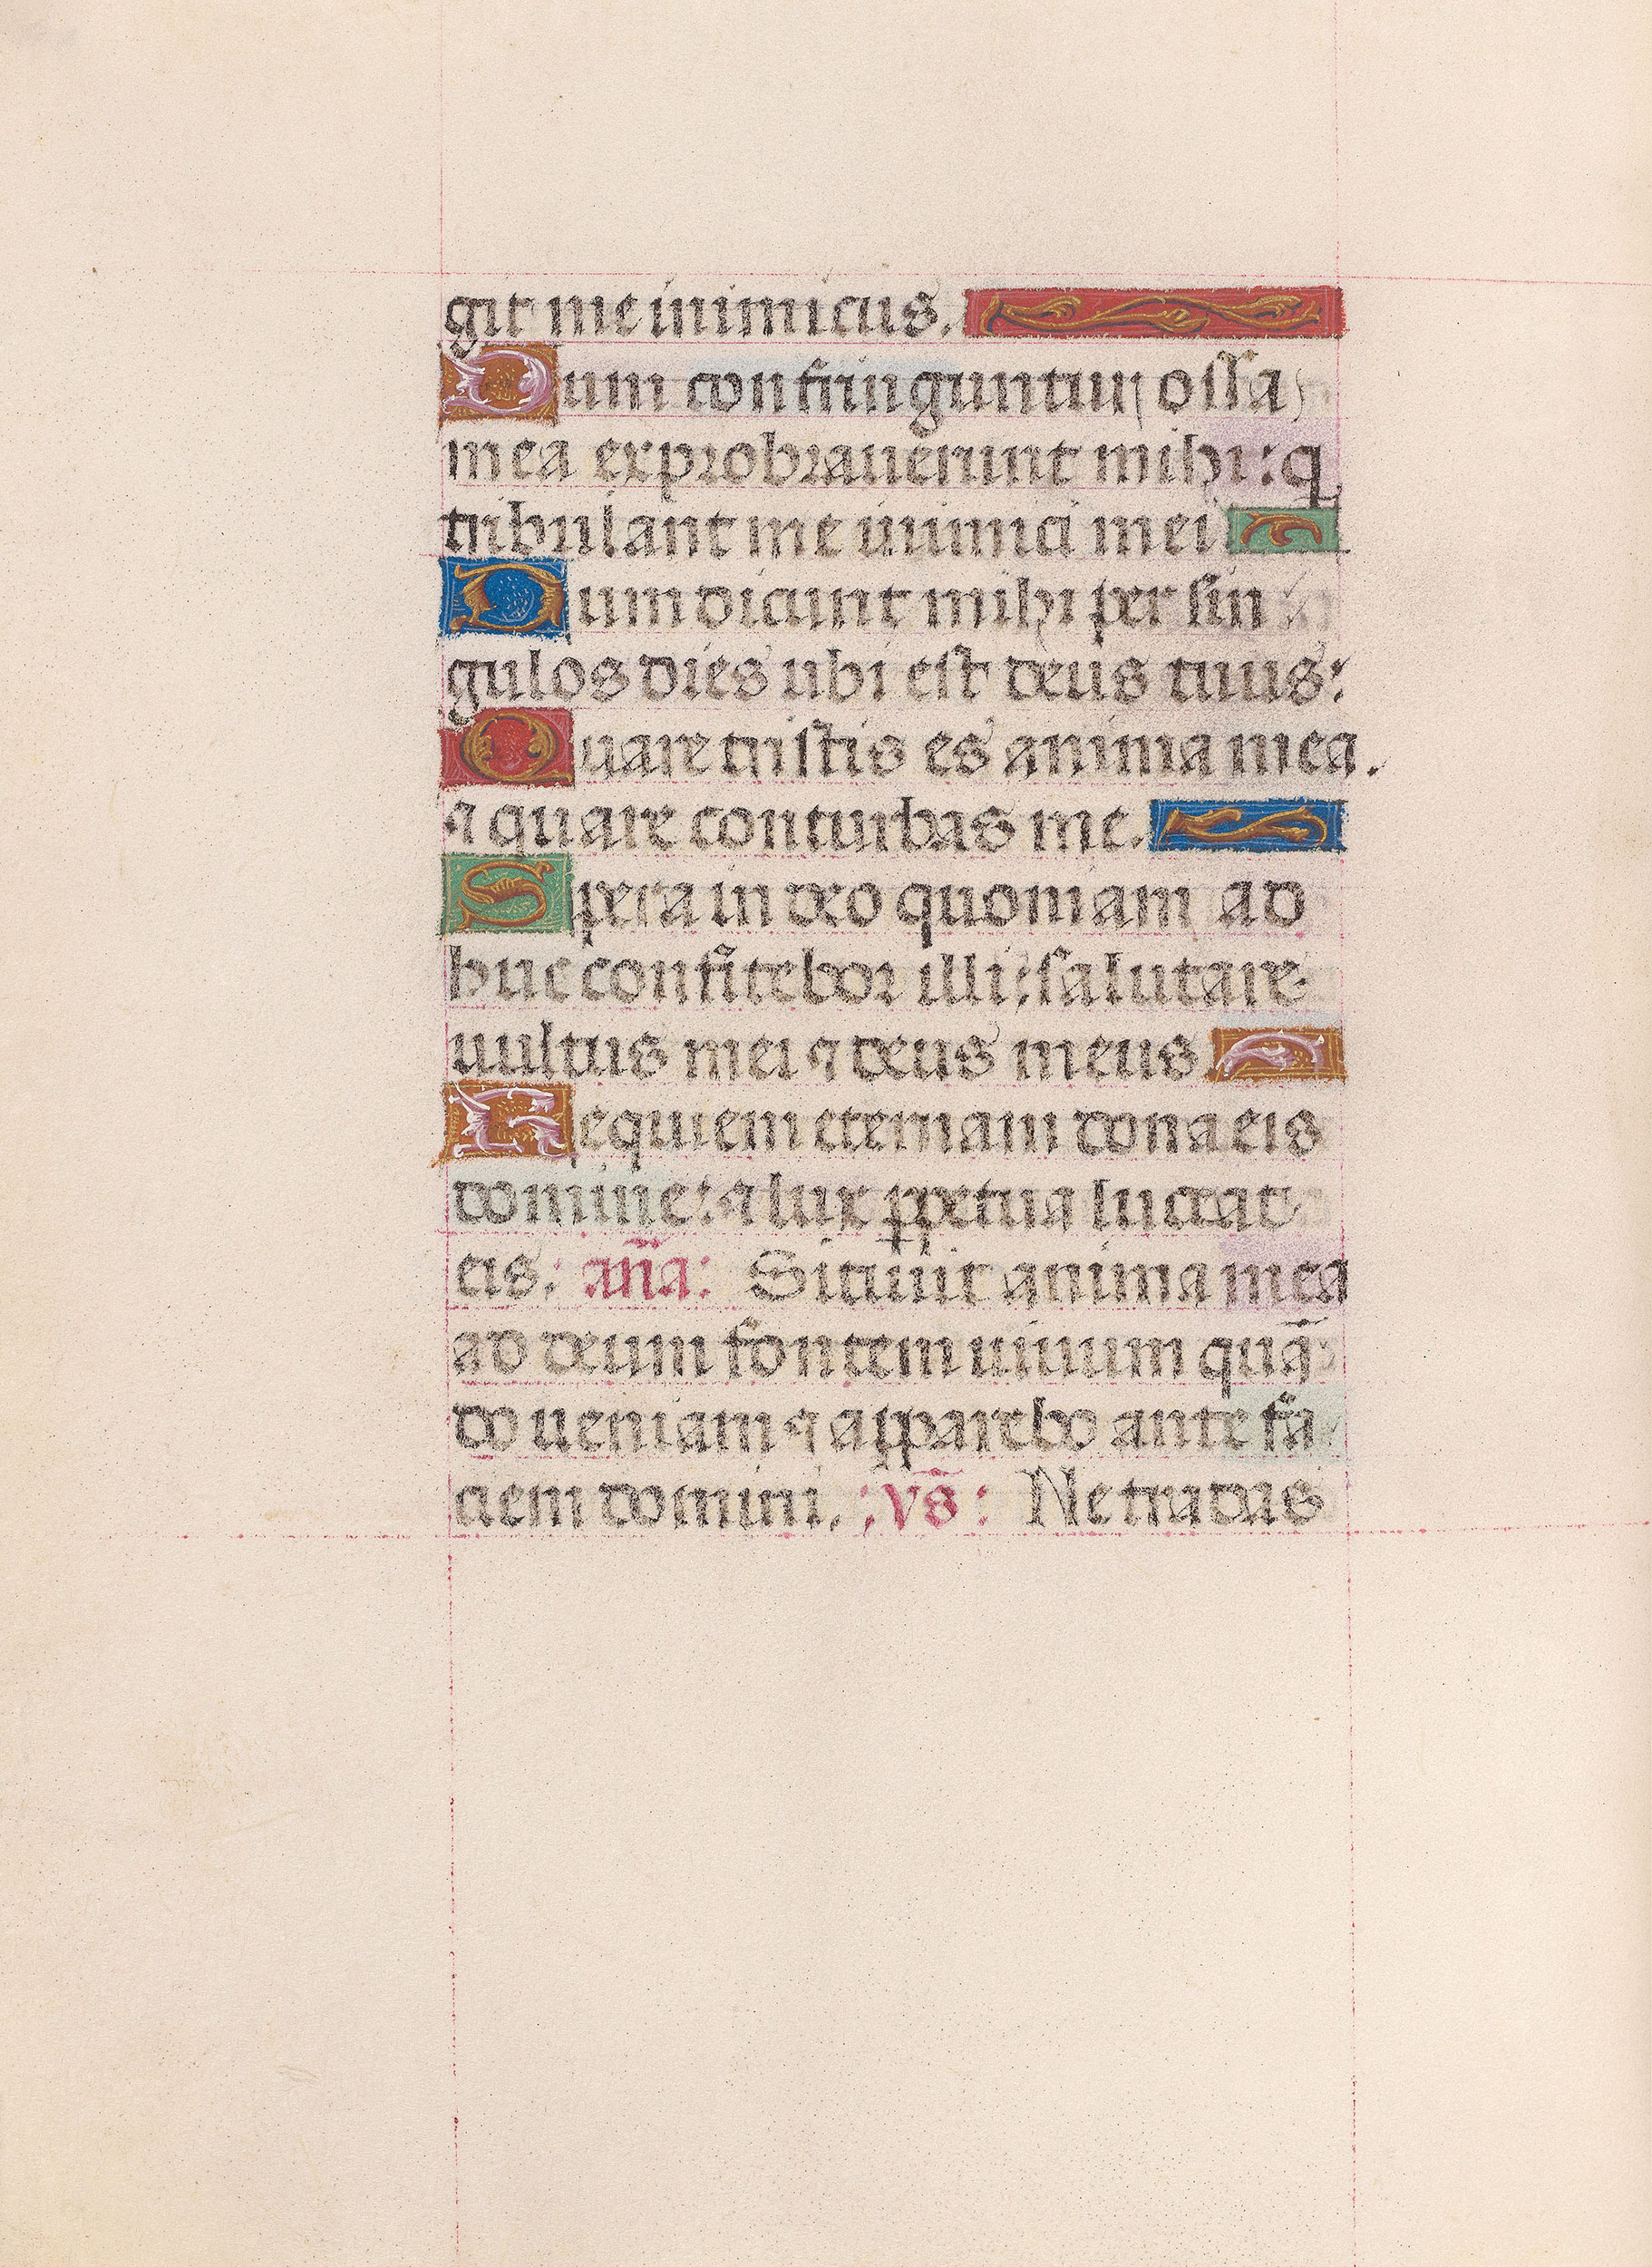 git me inimicus.
Dum confringuntur ossa
mea exprobrauerunt mihi: q
tribulant me inimici mei.
Dum dicunt mihi per sin
gulos dies ubi est deus tuus:
Quare tristis es anima mea.
⁊ quare conturbas me.
Spera in deo quoniam ad
huc confitebor illi: salutare
uultus mei ⁊ deus meus.
Requiem eternam dona eis
domine: ⁊ lux ꝑpetua luceat
eis: an̄a: Sitiuit anima mea
ad deum fontem uiuum quā
do ueniam ⁊ apparebo ante fa
ciem domini. : vs̄ : Ne tradas